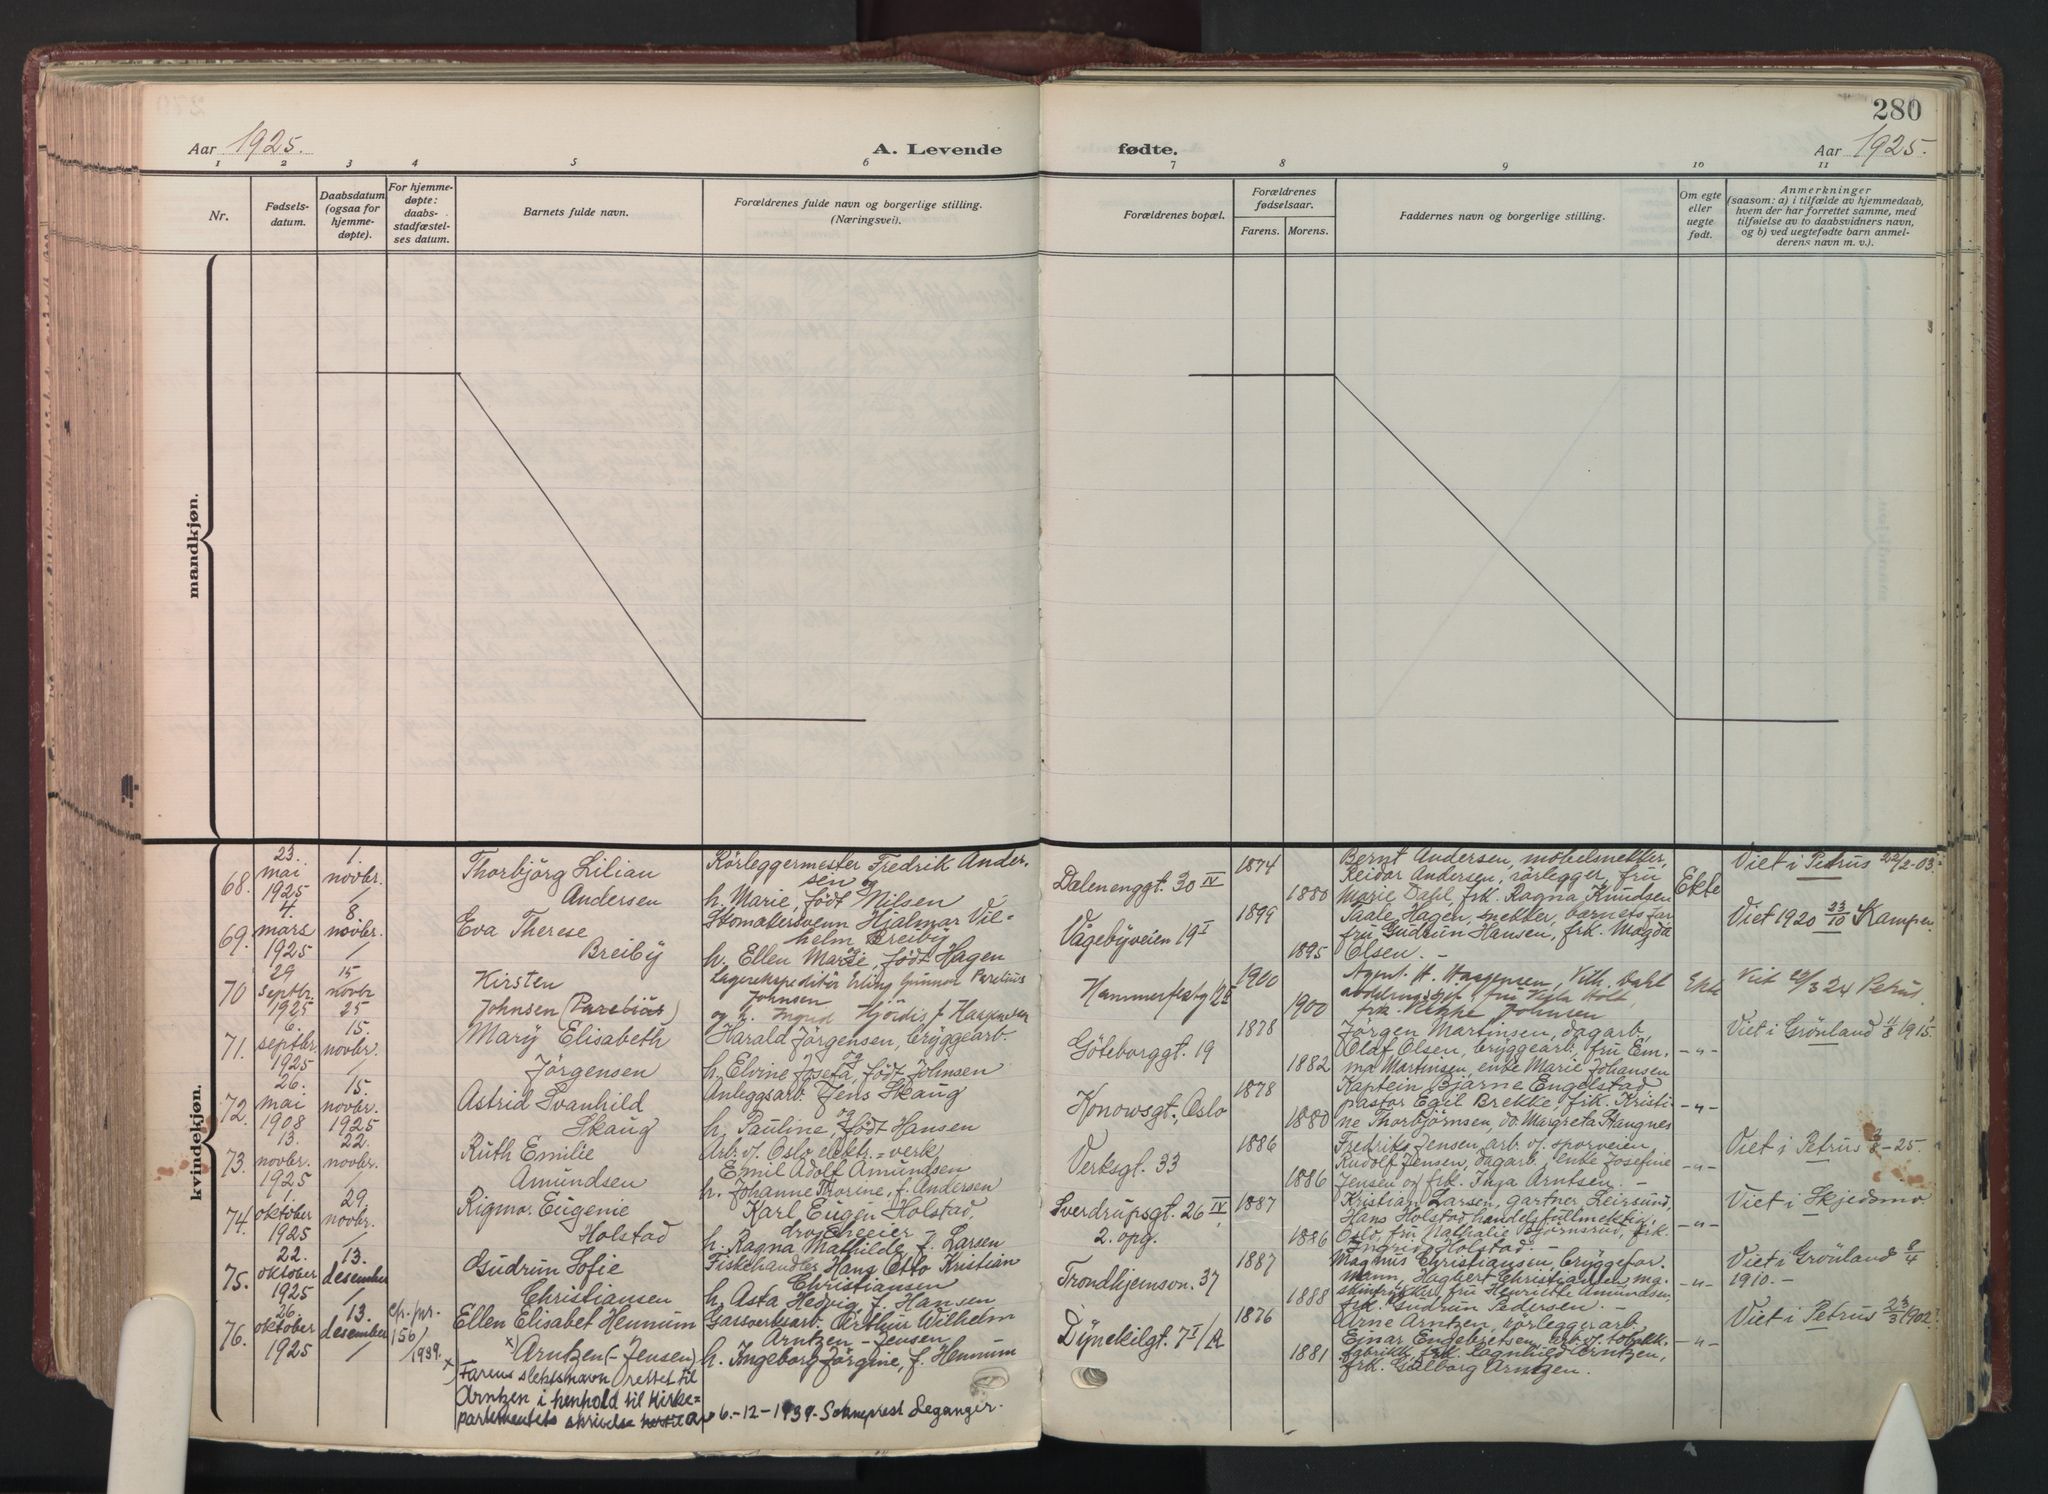 280
Aar 1925.
A. Levende
fødte.
Aar 1925.
1 2 3 4 5 6 7 8 9 10 11
Nr.
Fødsels-
datum.
Daabsdatum
(ogsaa for
hjemme-
døpte).
For hjemme-
døpte:
daabs-
stadfæstel-
ses datum.
Barnets fulde navn.
Forældrenes fulde navn og borgerlige stilling.
(Næringsvei).
Forældrenes bopæl.
Forældrenes
fødselsaar.
Farens. Morens.
Faddernes navn og borgerlige stilling.
Om egte
eller
uegte
født.
Anmerkninger
(saasom: a) i tilfælde av hjemmedaab,
hvem der har forrettet samme, med
tilføielse av to daabsvidners navn,
og b) ved uegtefødte barn anmel-
derens navn m. v.).
mandkjøn.
kvindekjøn.
68.
23.
mai
1925
1.
novbr.
Thorbjörg Lilian
Andersen
Rörleggermester Fredrik Ander-
sen og
h. Marie, född Nilsen
Dalenenggt. 30 IV
1874
1880
Bernt Andersen, möbelsnekker,
Reidar Andersen, rörlegger, fru
Marie Dahl, frk. Ragna Knudsen
Ekte
Viet i Petrus 22/2-03.
69.
4.
mars
1925
8
novbr.
Eva Therese
Breiby
Hjalmar Vil-
helm Breiby
h. Ellen Marie, född Hagen
Vågebyveien 19 I
1899
1895
Taale Hagen, snekker, barnets far
fru Gudrun Hansen, frk. Magda
Olsen. -
Viet 1920 23/10 Kampen
70
29
septbr.
1925
15
novbr
25
Kirsten
Johnsen (Parelius)
Lagerekspeditör Erling Gunnar Parelius
Johnsen
og h. Ingrid Hjördis f. Haagensen
Hammerfestg
1900
1900
Agent H. Haagensen, Vilh. Dahl
fru Holt,
frk. Johnsen
Ekte
Viet 24 Petrus
71.
6.
septbr.
1925
15.
novbr.
Mary Elisabeth
Jörgensen
Harald Jörgensen, bryggearb.
og
h. Elvine Josefa, född Johnsen
Göteborggt. 19
1878
1882
Jörgen Martinsen, dagarb,
Olaf Olsen, bryggearb. fru Em-
ma Martinsen, enke Marie Johansen
-"-
Viet i Grönland 4/8 1915.
72.
26.
mai
1908
15.
novbr.
1925
Astrid Svanhild
Skaug
Anleggsarb. Jens Skaug
og
h. Pauline, född Hansen
Konowsgt., Oslo
1878
1880
Kaptein Bjarne Engelstad
pastor Egil Brekke, frk. Kristi-
ne Thorbjörnsen, do. Margreta Haugnes
-"-
73.
13.
novbr.
1925
22.
novbr.
Ruth Emilie
Amundsen
Arb. v. Oslo elektr. = verk,
Emil Adolf Amundsen
h. Johanne Thorine, f. Andersen
Verksgt. 33
1886
1886
Fredrik Jensen, arb. v. sporveien
Rudolf Jensen, dagarb, enke Josefine
Jensen og frk. Inga Arntsen. -
-"-
Viet i Petrus -25.
74.
1.
oktober
1925
29.
novbr.
Rigmor Eugenie
Holstad
Karl Eugen Holstad,
h. Ragna Mathilde, f. Larsen
Sverdrupsgt. 26 IV,
2. opg.
1887
1886
Kristian Larsen, gartner Leirsund,
Hans Holstad, handelsfullmektig,
Oslo, fru Nathalie Björnsrud, frk.
Ingrid Holstad. -
-"-
Viet i Skjedsmo.
75.
22.
oktober
1925
13.
desember
Gudrun Sofie
Christiansen
Fiskehandler Hans Otto Kristian
Christiansen
h. Asta Hedvig, f. Hansen
Trondhjemsvn. 37
1887
1888
Magnus Christiansen, bryggefor-
mann, Hagbert Christiansen, ma-
skintrykker, fru Henriette Amundsen,
frk. Gudrun Pedersen. -
-"-
Viet i Grönland 8/4
1910. -
76.
26.
oktober
1925
13.
desember
cfr. pr.
156/
1939.
Ellen Elisabet Hennum
x) Arntzen (- Jensen)
Gasverksarb. Arthur Wilhelm
Arntzen - Jensen
h. Ingeborg Jörgine, f. Hennum
Dynekilgt. 7 I/
1876
1881
Arne Arntzen, rörleggerarb.
Einar Engebretsen, arb. v. tobakk-
fabrikk, frk. Ragnhild Arntzen,
frk. Gulborg Arntzen.
-"-
Viet i Petrus 23/3 1902.
x) Farens slektsnavn rettet til
Arntzen i henhold til Kirke=
partementets skrivelse av 6.-12-1939. Sokneprest Degangir.